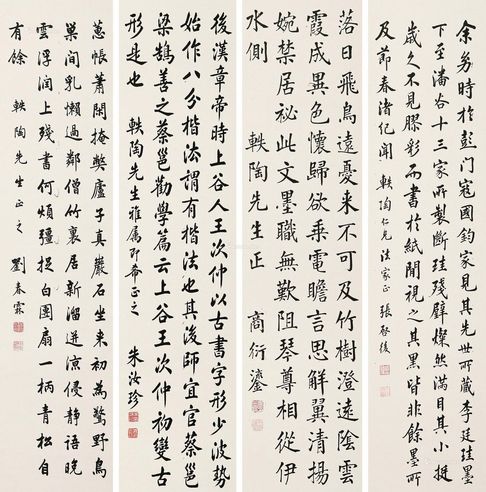 余多時於彭门寇國鈞家見其先世所藏李廷珪墨
下至潘谷十三家所製斷珪殘璧燦然滿目其小挺
歲久不見膠彩而書於紙間視之其黑皆非餘墨所
及節春渚纪闻 軼陶仁兄法家正 張啓後
落日飛鳥遠憂来不可及竹樹澄遠陰雲
霞成異色懷歸欲乘電瞻言思解翼清揚
婉禁居祕此文墨職無歎阻琴尊相從伊
水側 軼陶先生正 商衍鎏
後漢章帝時上谷人王次仲以古書字形少波勢
始作八分楷法謂有楷法也其後師宜官蔡邕
梁鵠善之蔡邕勸學篇云上谷王次仲初變古
形是也 軼陶先生雅属即希正之 朱汝珍
蕙帳蕭閑掩弊廬子真巖石坐来初為驚野鳥
巢間乳懶過鄰僧竹裏居新溜迸涼侵静語晚
雲浮润上殘書何煩彊捉白團扇一柄青松自
有餘 軼陶先生正之 劉春霖